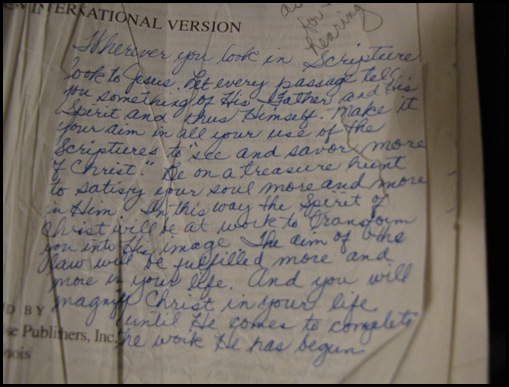 INTERNATIONAL VERSION
for
hearing
Wherever you look in Scripture
look to Jesus. Let every passage tell
you something of His Father and His
Spirit and thus Himself. Make it
your aim in all your use of the
Scriptures to "see and savor more
of Christ." Be on a treasure hunt
to satisfy your soul more and more
in Him. In this way the Spirit of
Christ will be at work to transform
you into His image The aim of the
law will be fulfilled more and
more in your life. And you will
magnify Christ in your life
until He comes to complete
the work He has begun
D BY
Publishers, Inc.
nois